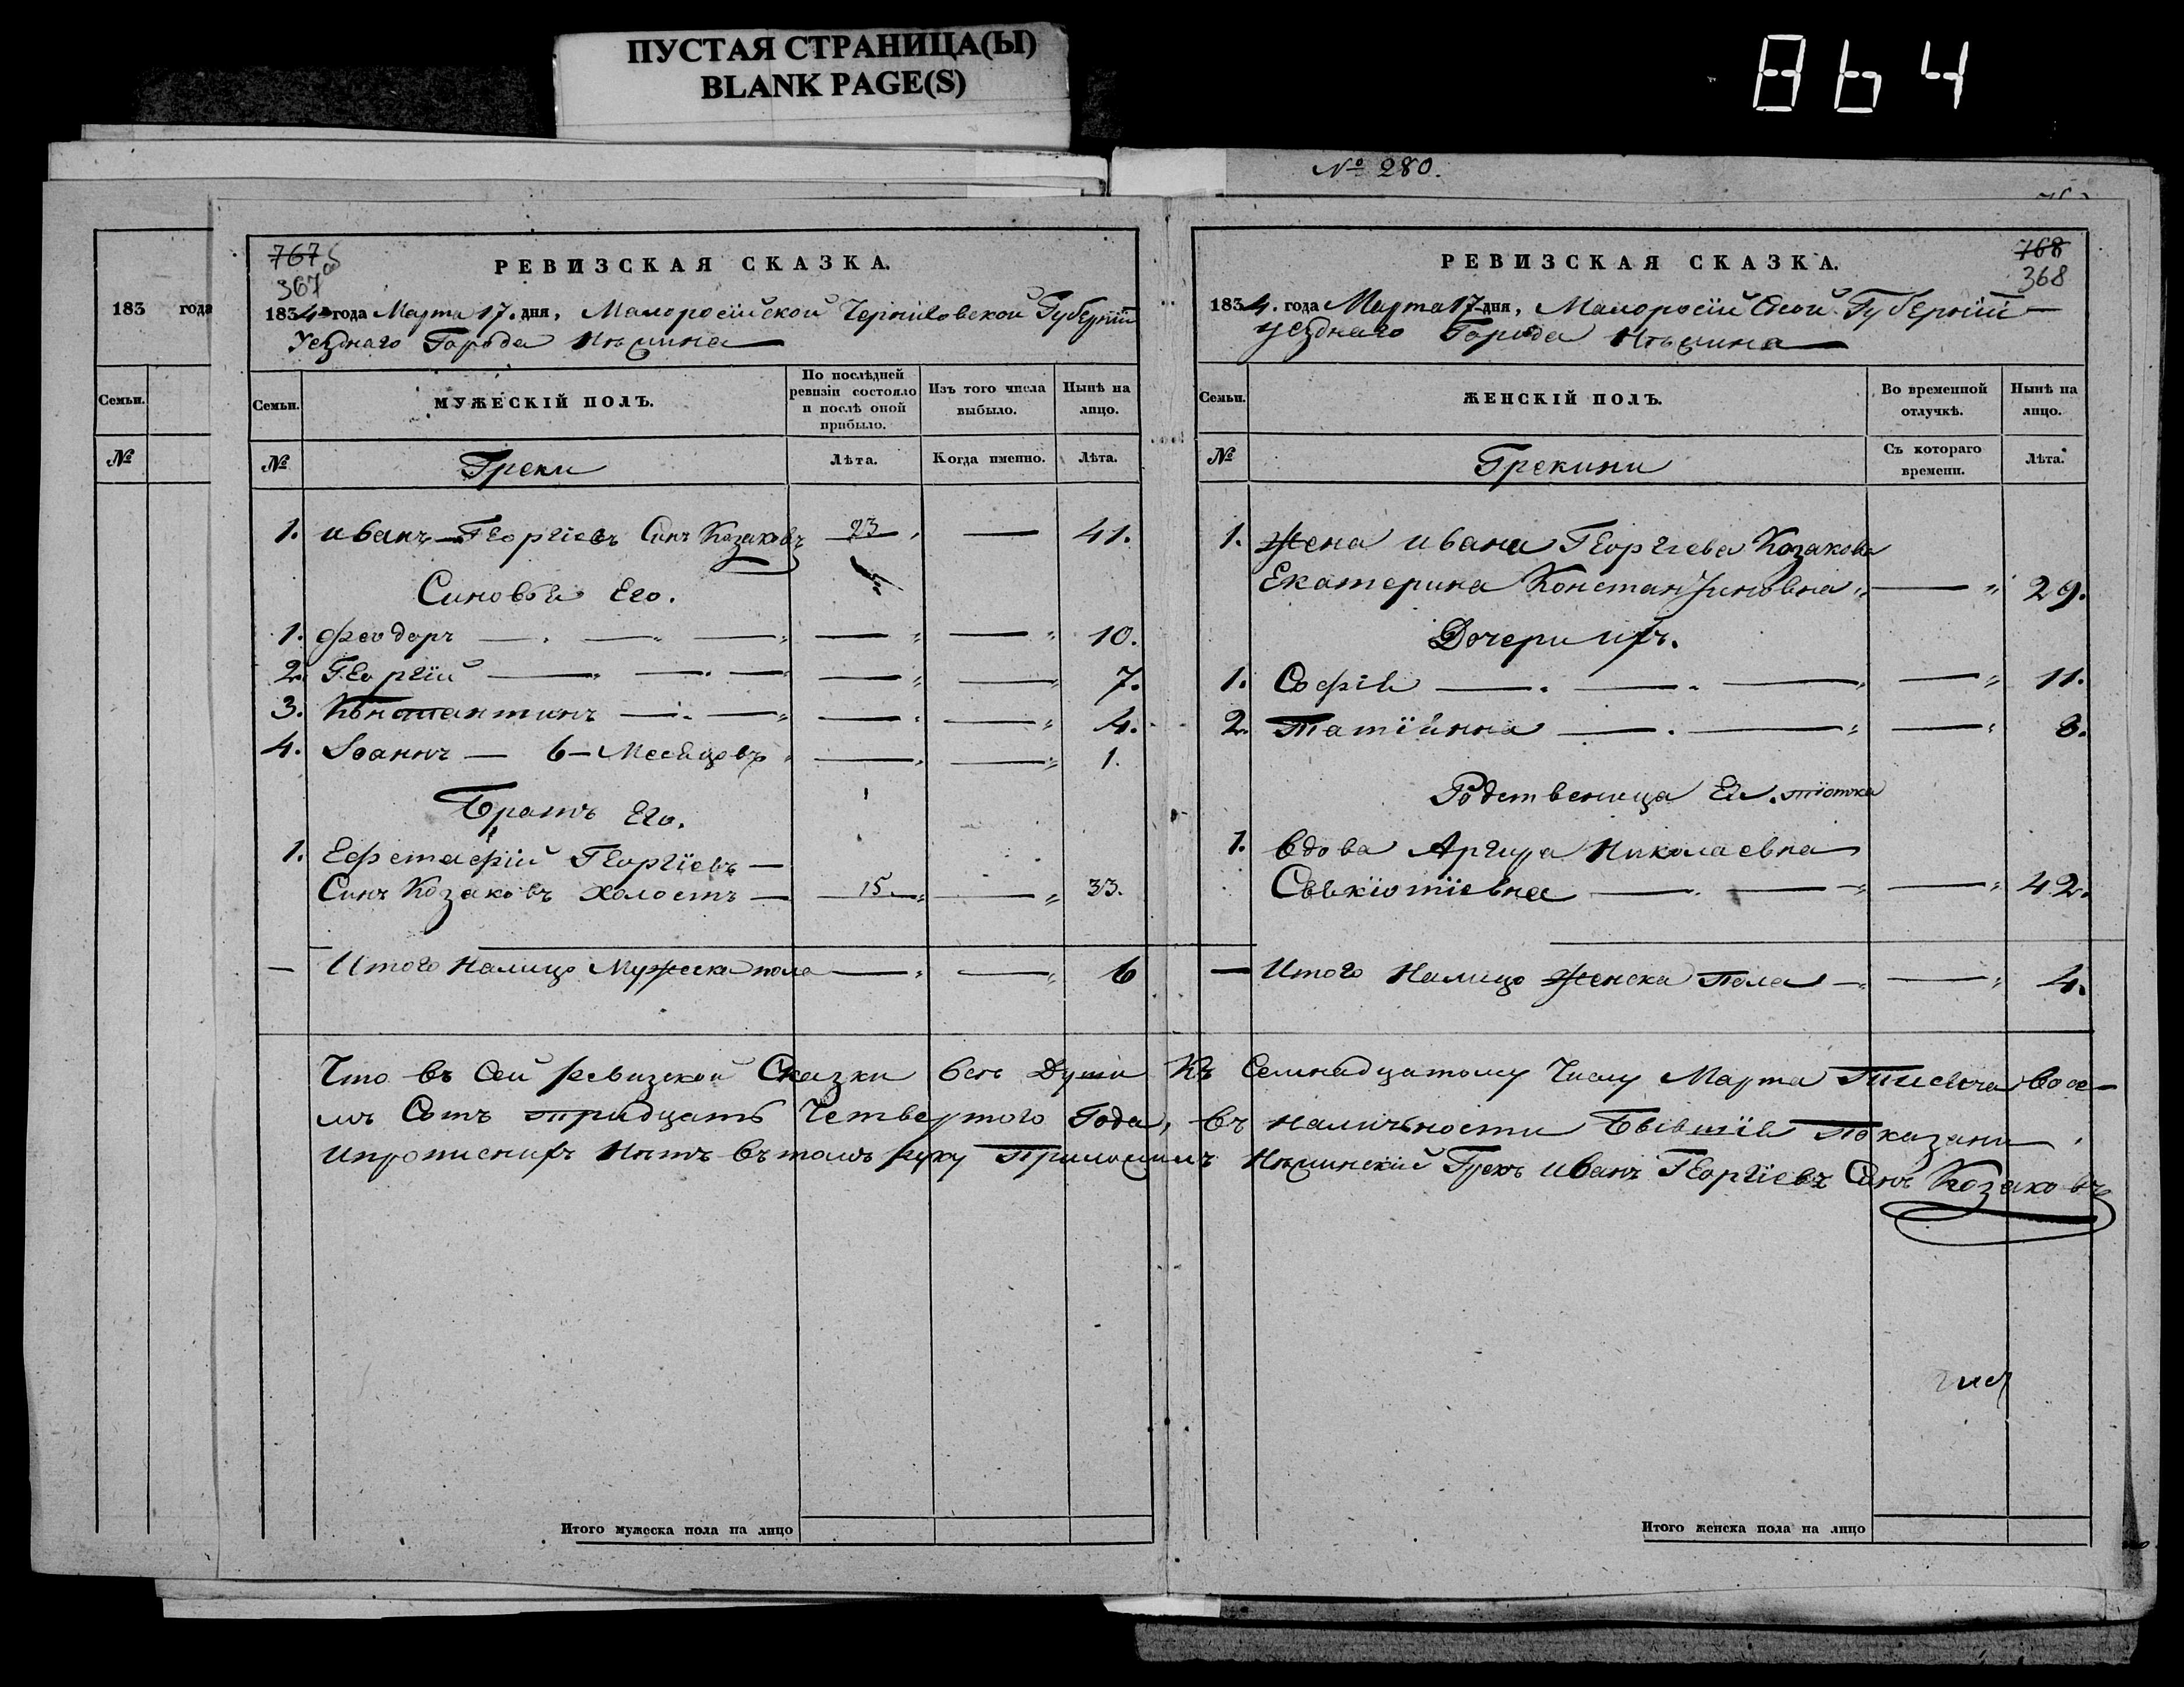 ПУСТАЯ СТРАНИЦА(Ы)
BLANK PAGE(S)
864
№ 280.
183 года
Семьи.
№
767
367 об
РЕВИЗСКАЯ СКАЗКА.
1834 года Марта 17. дня, Малоросiйской Черниговской Губернiи
Уезднаго Города Нѣжина
Семьи.
МУЖЕСКІЙ ПОЛЪ.
По послѣдней ревизіи состояло и послѣ оной прибыло.
Изъ того числа выбыло.
Нынѣ на лицо.
№
Греки
Лѣта.
Когда именно.
Лѣта.
1. иванъ Георгіевъ Синъ Козаковъ 23 — 41.
Синовья Его.
1. феодоръ — 10.
2. Георгій — 7.
3. Константинъ — 4.
4. Іоаннъ — 6 — Месяцовъ — 1.
Братъ Его.
1. Ефстафій Георгіевъ —
Синъ Козаковъ холостъ — 15. — 33.
— Итого Налицо Мужеска пола — 6
768
368
РЕВИЗСКАЯ СКАЗКА.
1834. года Марта 17 дня, Малоросiйской Губернiи
уезднаго Города Нѣжина
Семьи.
ЖЕНСКІЙ ПОЛЪ.
Во временной отлучкѣ.
Нынѣ на лицо.
№
Грекини
Съ котораго времени.
Лѣта.
1. Жена ивана Георгіева Козакова
Екатерина Константиновна — 29.
Дочери ихъ.
1. Софія — 11.
2. Татіянна — 8.
Родственица Ея. тіотка
1. вдова Аргира Николаевна
— 42.
— Итого Налицо Женска Пола — 4.
Что въ Сей ревизской Сказки всѣ Души Къ Семнадцатому Числу Марта Тисяча восе-
мъ Сотъ тридцать Четвертого Года, въ наличьности Бывшія Показани
ипрописнихъ Нѣтъ вътомъ руку Приложилъ Нѣжинскій Грекъ иванъ Георгіевъ Синъ Козаковъ
Итого мужеска пола на лицо
Итого женска пола на лицо